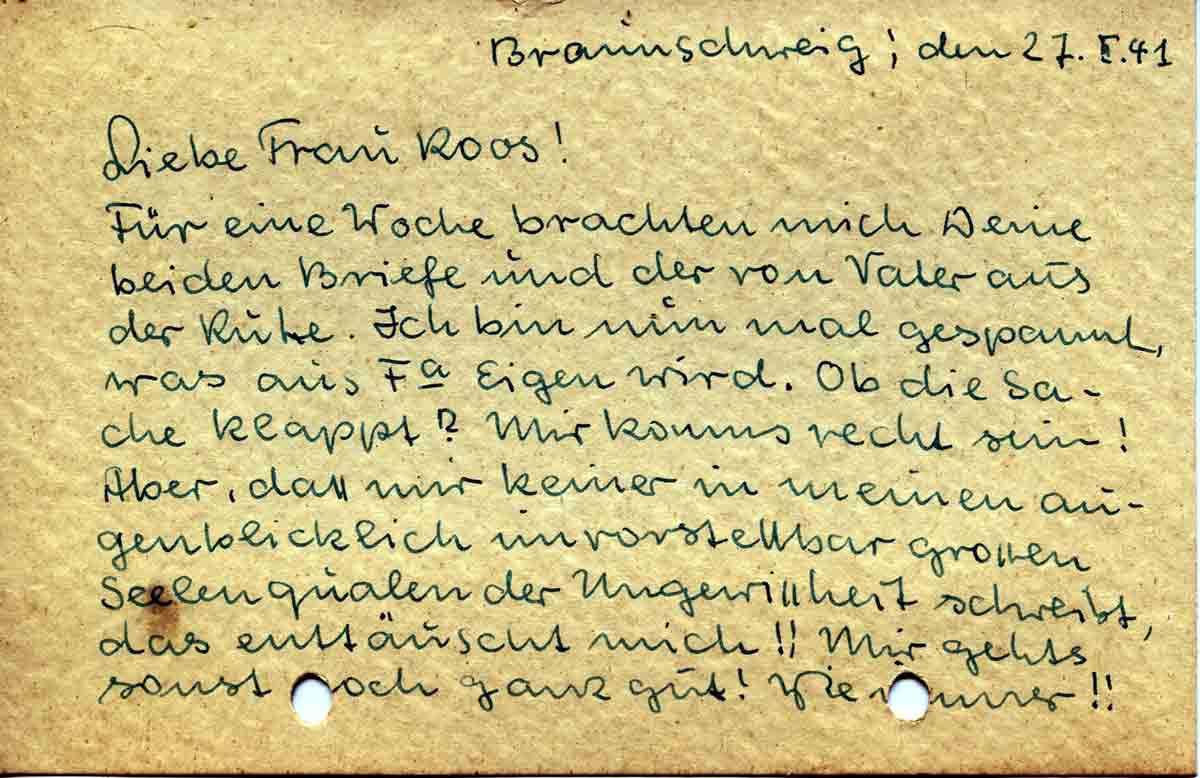 Braunschweig, den 27.I.41
Liebe Frau Koos!
Für eine Woche brachten mich Deine
beiden Briefe und der von Vater aus
der Ruhe. Ich bin nun mal gespannt,
was aus Fa Eigen wird. Ob die Sa-
che klappt? Mir kanns recht sein!
Aber, dass mir keiner in meinen au-
genblicklich unvorstellbar grossen
Seelenqualen der Ungewissheit schreibt,
das enttäuscht mich!! Mir gehts
sonst noch ganz gut! Wie immer!!